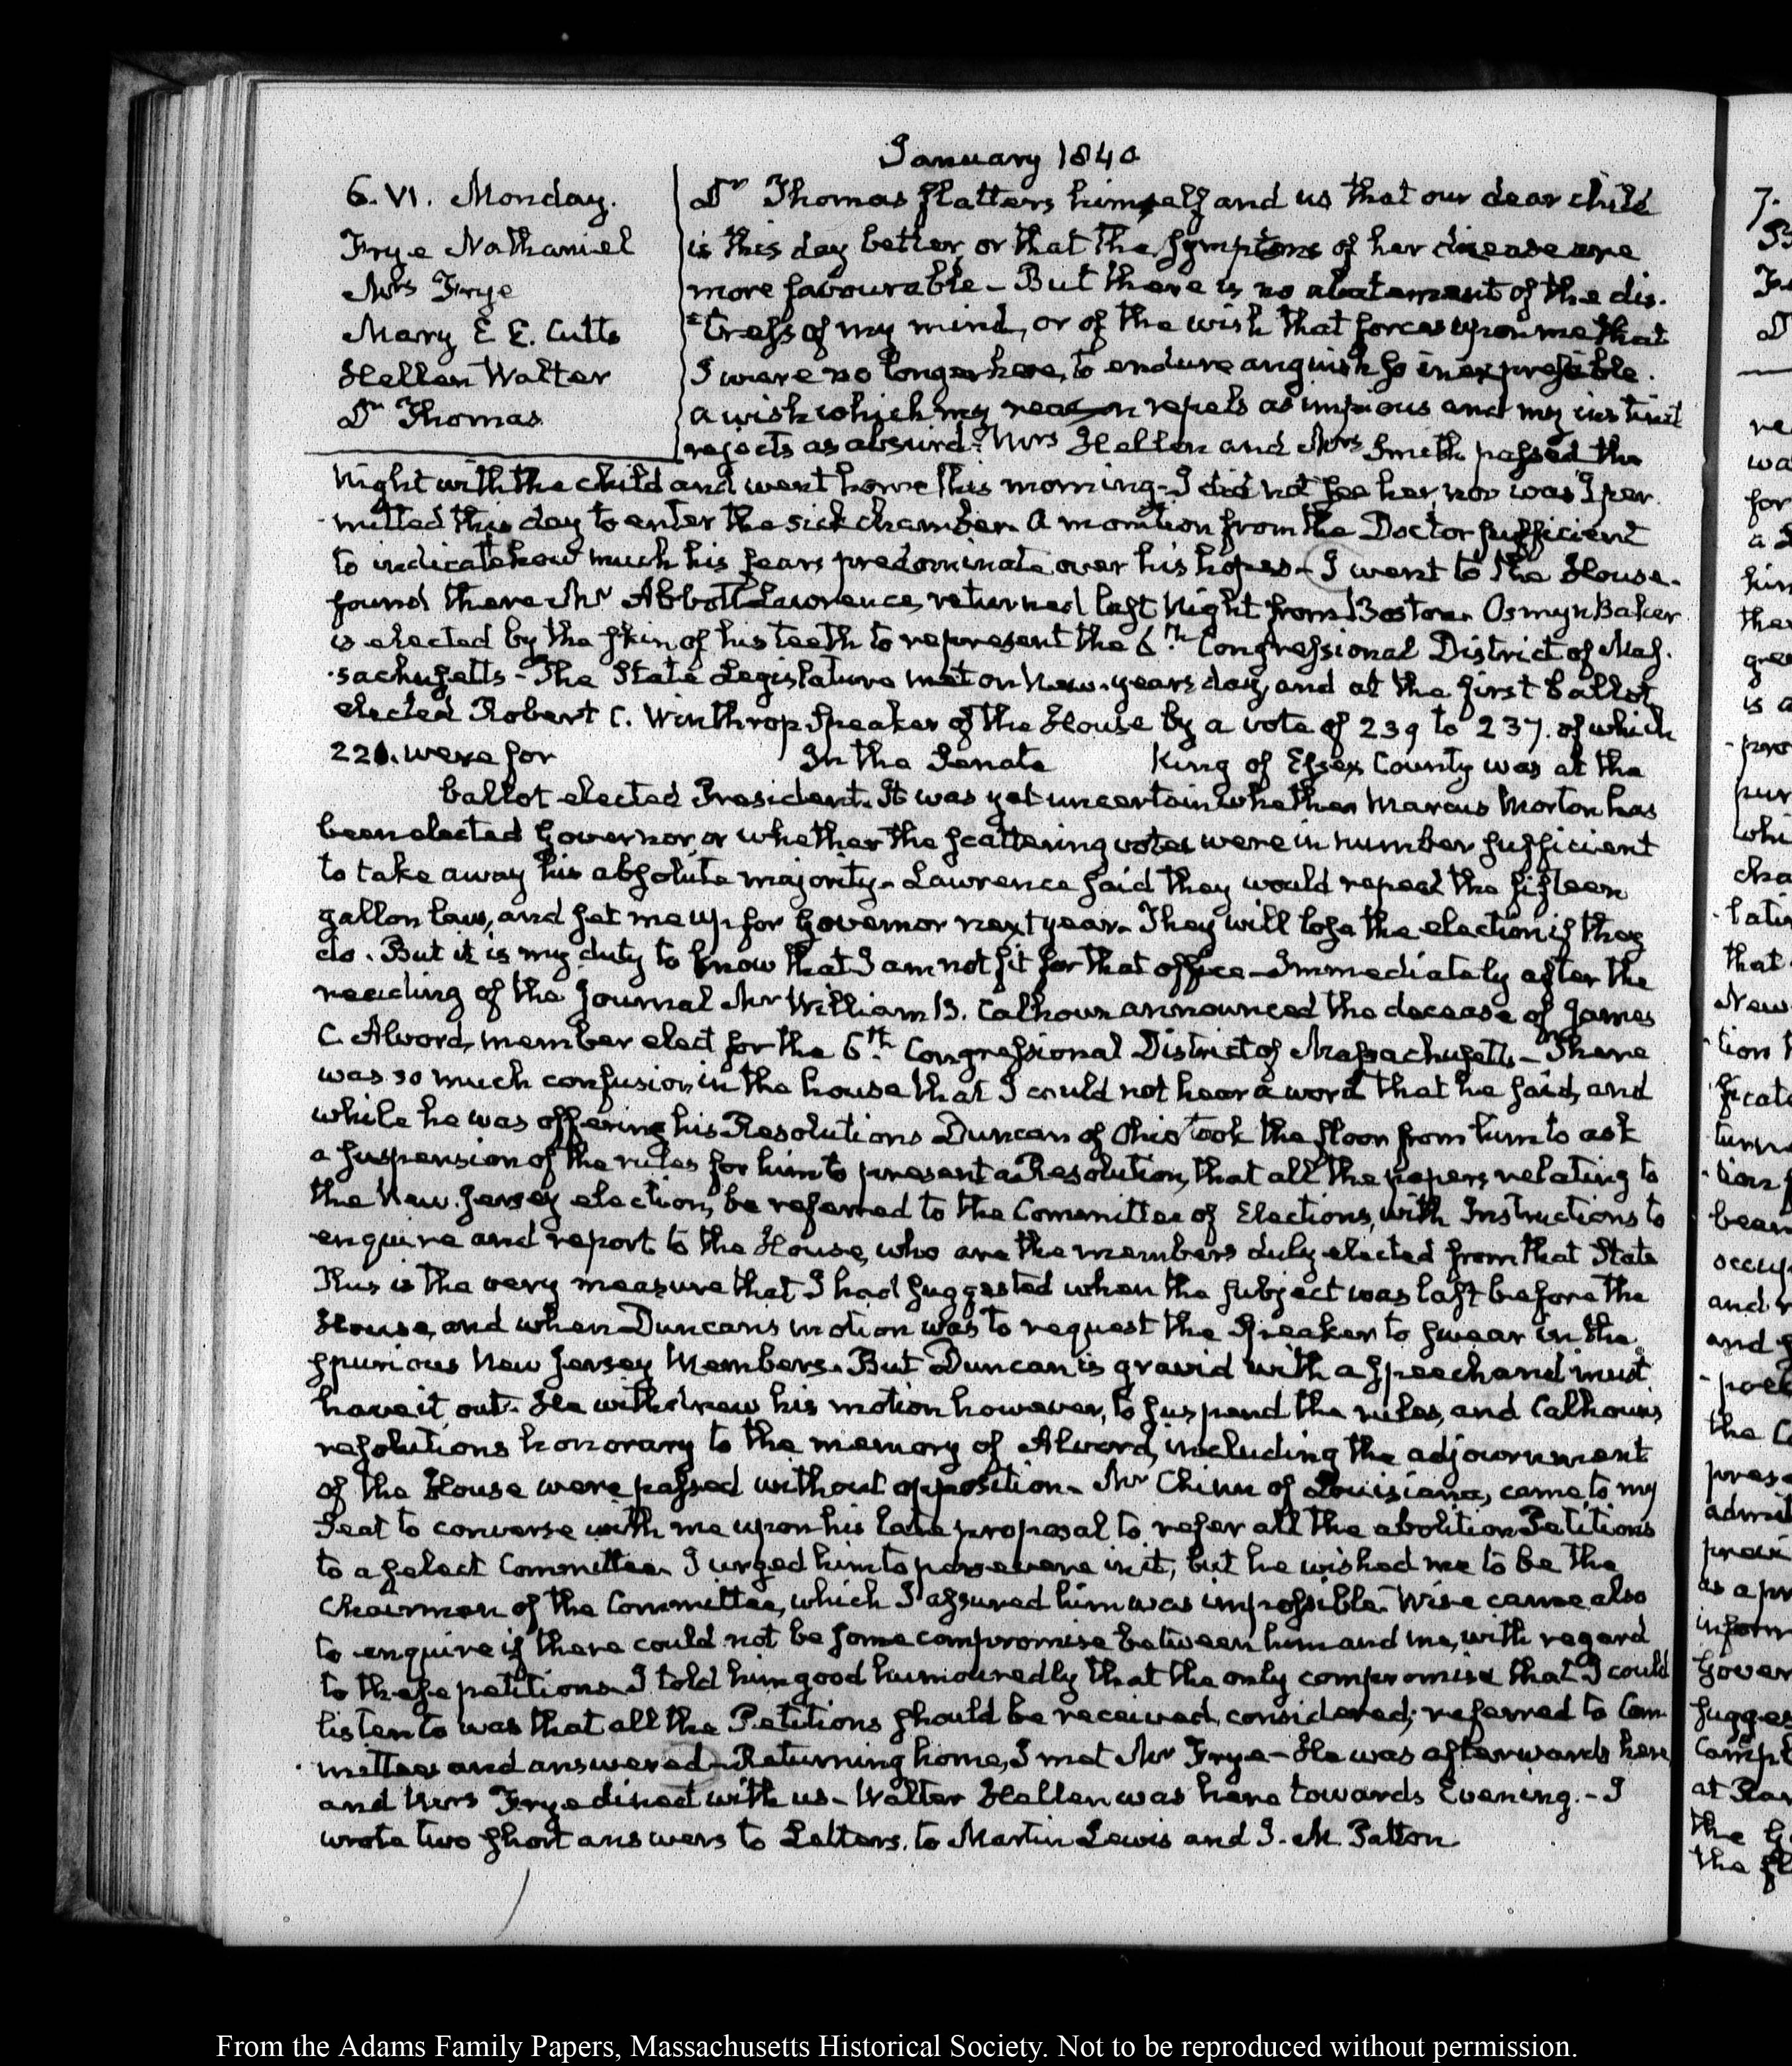 January 1840
6. VI. Monday.
Frye Nathaniel
Mrs Frye
Mary E. E. Cutts
Hellen Walter
Dr Thomas
Dr Thomas flatters himself and us that our dear child
is this day better, or that the symptoms of her disease are
more favourable - But there is no abatement of the dis-
tress of my mind, or of the wish that forces upon me that
I were no longer here, to endure anguish so inexpressible.
a wish which my reason repels as impious and my instinct
rejects as absurd. Mrs Hellen and Mrs Smith passed the
Night with the child and went home this morning - I did not see her nor was I per-
mitted this day to enter the sick chamber. A monition from the Doctor sufficient
to indicate how much his fears predominate over his hopes - I went to the House.
found there Mr Abbott Lawrence, returned last Night from Boston. Osmyn Baker
is elected by the skin of his teeth to represent the 6th Congressional District of Mas-
sachusetts - The State Legislature met on New-years day, and at the first ballot
elected Robert C. Winthrop Speaker of the House by a vote of 239 to 237. of which
221. were for In the Senate King of Essex County was at the
ballot elected President. It was yet uncertain whether Marcus Morton has
been elected Governor, or whether the scattering votes were in number sufficient
to take away his absolute majority. Lawrence said they would repeal the fifteen
gallon law, and set me up for Governor next year. They will lose the election if they
do. But it is my duty to know that I am not fit for that office - Immediately after the
reading of the Journal Mr William B. Calhoun announced the decease of James
C. Alvord, member elect for the 6th Congressional District of Massachusetts - There
was so much confusion in the house that I could not hear a word that he said, and
while he was offering his Resolutions Duncan of Ohio took the floor from him to ask
a suspension of the rules for him to present a Resolution, that all the papers relating to
the New-Jersey election, be referred to the Committee of Elections, with Instructions to
enquire and report to the House, who are the members duly elected from that State
This is the very measure that I had suggested when the subject was last before the
House, and when Duncan's motion was to request the Speaker to swear in the
spurious New Jersey Members. But Duncan is gravid with a speech and must
have it out. He withdrew his motion however, to suspend the rules, and Calhoun's
resolutions honorary to the memory of Alvord, including the adjournment
of the House were passed without opposition. Mr Chinn of Louisiana, came to my
Seat to converse with me upon his late proposal to refer all the abolition Petitions
to a select Committee. I urged him to persevere in it, but he wished me to be the
Chairman of the Committee, which I assured him was impossible. Wise came also
to enquire if there could not be some compromise between him and me, with regard
to these petitions. I told him good humouredly that the only compromise that I could
listen to was that all the Petitions should be received, considered, referred to Com-
mittees and answered - Returning home, I met Mr Frye - He was afterwards here,
and Mrs Frye dined with us - Walter Hellen was here towards Evening. - I
wrote two short answers to Letters, to Martin Lewis and J. M. Patton.
From the Adams Family Papers, Massachusetts Historical Society. Not to be reproduced without permission.